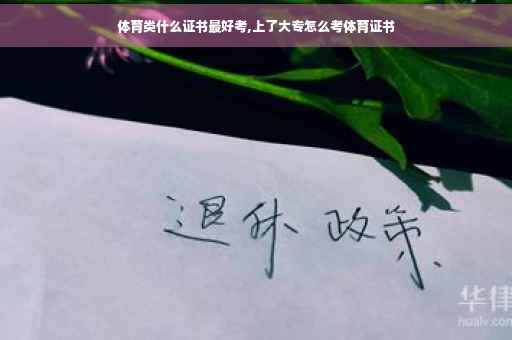 体育类什么证书最好考,上了大专怎么考体育证书
退休 政策
华律
hualv.com